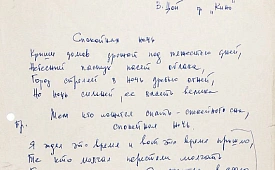 В. Цой гр. "Кино"
Спокойная ночь
Крыши домов дрожат под тяжестью дней,
Небесный пастух пасёт облака,
Город стреляет в ночь дробью огней,
Но ночь сильней, её власть велика
Тем кто ложится спать - спокойного сна,
Пр.
спокойная ночь
Я ждал это время и вот это время пришло,
Те кто молчал перестали молчать